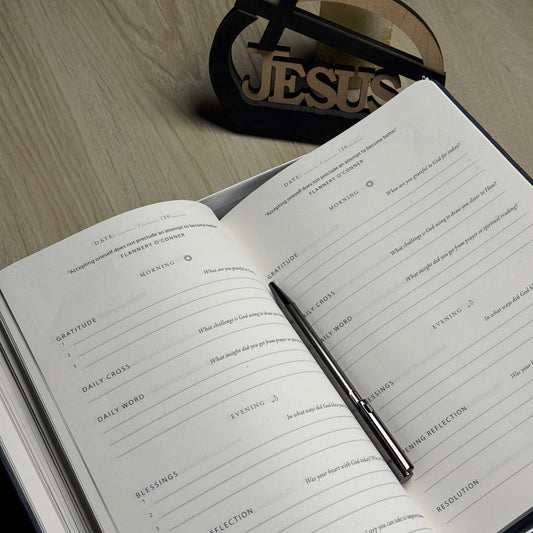 JESUS
DATE: ___/___/20___
"Accepting oneself does not preclude an attempt to become better"
FLANNERY O'CONNER
MORNING
What are you grateful
GRATITUDE
1
2
3
What challenge is God using to draw you
DAILY CROSS
What insight did you get from prayer or spiritual
DAILY WORD
EVENING
In what ways did God bless
BLESSINGS
1
2
3
Was your heart with God today?
REFLECTION
step you can take to improve
DATE: ___/___/20___
"Accepting oneself does not preclude an attempt to become better"
FLANNERY O'CONNER
MORNING
What are you grateful to God for today?
GRATITUDE
What challenge is God using to draw you closer to Him?
DAILY CROSS
What insight did you get from prayer or spiritual reading?
DAILY WORD
EVENING
In what ways did God bless
BLESSINGS
Was your
EVENING REFLECTION
RESOLUTION